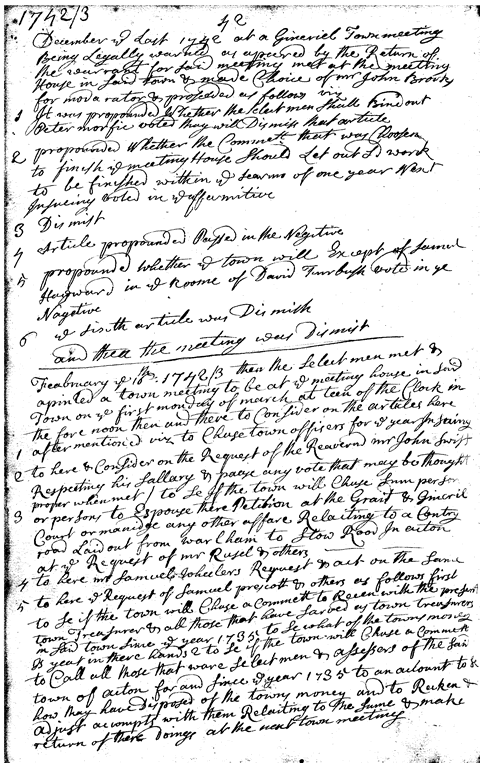 1742/3
42
December ye Last 1742 at a Gineriel Town meeting
Being Legally warned as apeered by the Return of
the warrant for said meeting met at the meeting
House in said town & made Choice of mr John Brooks
for modarator & proseded as follows viz
1 It was propounded Whether the Select men Shall Bind out
Peter morfie voted thay with Dismis that article
2 propounded Whether the Commett that was Choosen
to finish ye meeting House Should Let out sd work
to be finished within ye tearme of one year Next
Insueing voted in ye affurmitive
3 Dismist
4 Article propounded Passed in the Negitive
5 propounded whether ye town will Except of Samuel
Hayward in ye Roome of David Turbush vote in ye
Nagitive
6 ye Sixth article was Dismish
and then the meeting was Dismist
Feabruary ye 18th 1742/3 then the Select men met &
apinted a town meeting to be at ye meeting house in said
Town on ye first monday of march at teen of the Clock in
the fore noon then and there to Consider on the articles here
1 after mention'd viz to Chuse town officers for ye year Insuing
2 to here & Consider on the Request of the Reaverend mr John Swift
Respecting his Sallary & pase any vote that may be thought
proper when met
3 to Se if the town will Chuse Sum person
or persons to Espouse there Petition at the Grait & Gineril
Court or manidge any other affare Relaiting to a Contry
road Laid out from warCham to Stow Road In acton
at ye Request of mr Rusel & others
4 to here mr Samuel Wheelers Request & act on the Same
5 to here ye Request of Samuel prescott & others as follows first
to Se if the town will Chuse a Commett to Recen with the present
town Treasurer & all those that have Sarved as town treasurers
in said town Since ye year 1735 to Se what of the towns money
is yeat in there hands 2 to Se if the town will Chuse a Commett
to Call all those that ware Select men & asessors of the said
town of acton for and Since ye year 1735 to an acount to Se
how thay have disposed of the towns money and to Recken &
adjust accompts with them Relaiting to the Same & make
return of there doings at the next town meeting